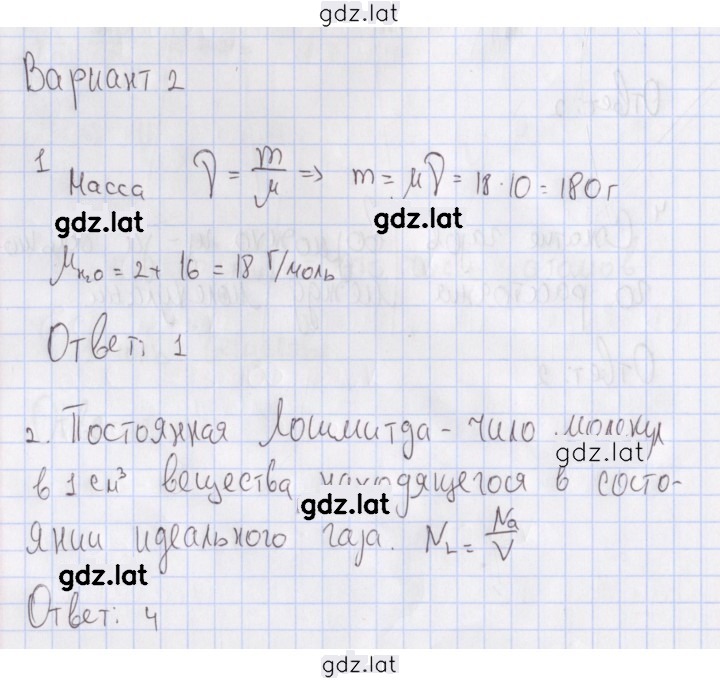 gdz.lat
Вариант 2
1 Масса ν = m/μ => m = μν = 18 · 10 = 180 г
gdz.lat gdz.lat
μ H₂O = 2 + 16 = 18 г/моль
Ответ: 1
2. Постоянная Лошмитда - число молекул
gdz.lat
в 1 см³ вещества находящегося в состо-
gdz.lat
янии идеального газа. N_L = Na/V
gdz.lat
Ответ: 4
gdz.lat